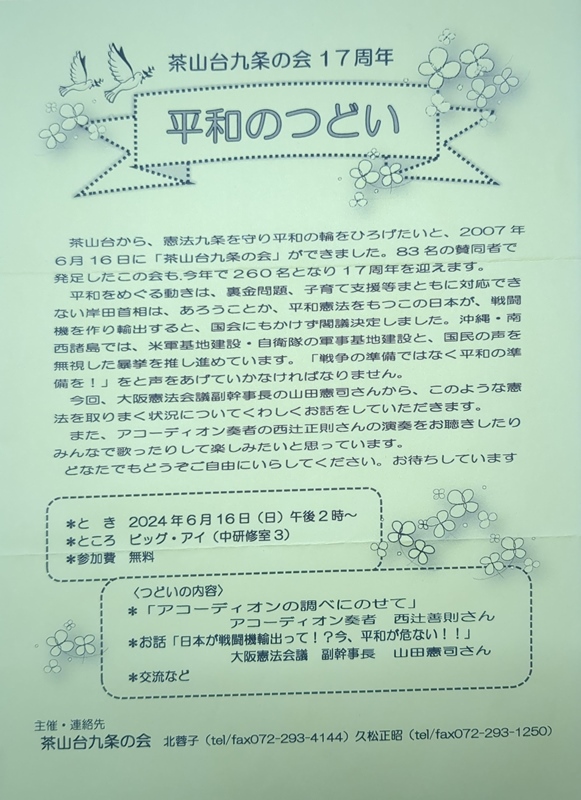 茶山台九条の会17周年
平和のつどい
茶山台から、憲法九条を守り平和の輪をひろげたいと、2007年
6月16日に「茶山台九条の会」ができました。83名の賛同者で
発足したこの会も、今年で260名となり17周年を迎えます。
平和をめぐる動きは、裏金問題、子育て支援等まともに対応でき
ない岸田首相は、あろうことか、平和憲法をもつこの日本が、戦闘
機を作り輸出すると、国会にもかけず閣議決定しました。沖縄・南
西諸島では、米軍基地建設・自衛隊の軍事基地建設と、国民の声を
無視した暴挙を推し進めています。「戦争の準備ではなく平和の準
備を！」をと声をあげていかなければなりません。
今回、大阪憲法会議副幹事長の山田憲司さんから、このような憲
法を取りまく状況についてくわしくお話をしていただきます。
また、アコーディオン奏者の西辻正則さんの演奏をお聴きしたり
みんなで歌ったりして楽しみたいと思っています。
どなたでもどうぞご自由にいらしてください。お待ちしています
＊とき 2024年6月16日（日）午後2時～
＊ところ ビッグ・アイ（中研修室3）
＊参加費 無料
〈つどいの内容〉
＊「アコーディオンの調べにのせて」
アコーディオン奏者 西辻善則さん
＊お話「日本が戦闘機輸出って！？今、平和が危ない！！」
大阪憲法会議 副幹事長 山田憲司さん
＊交流など
主催・連絡先
茶山台九条の会 北蓉子（tel/fax072-293-4144）久松正昭（tel/fax072-293-1250）